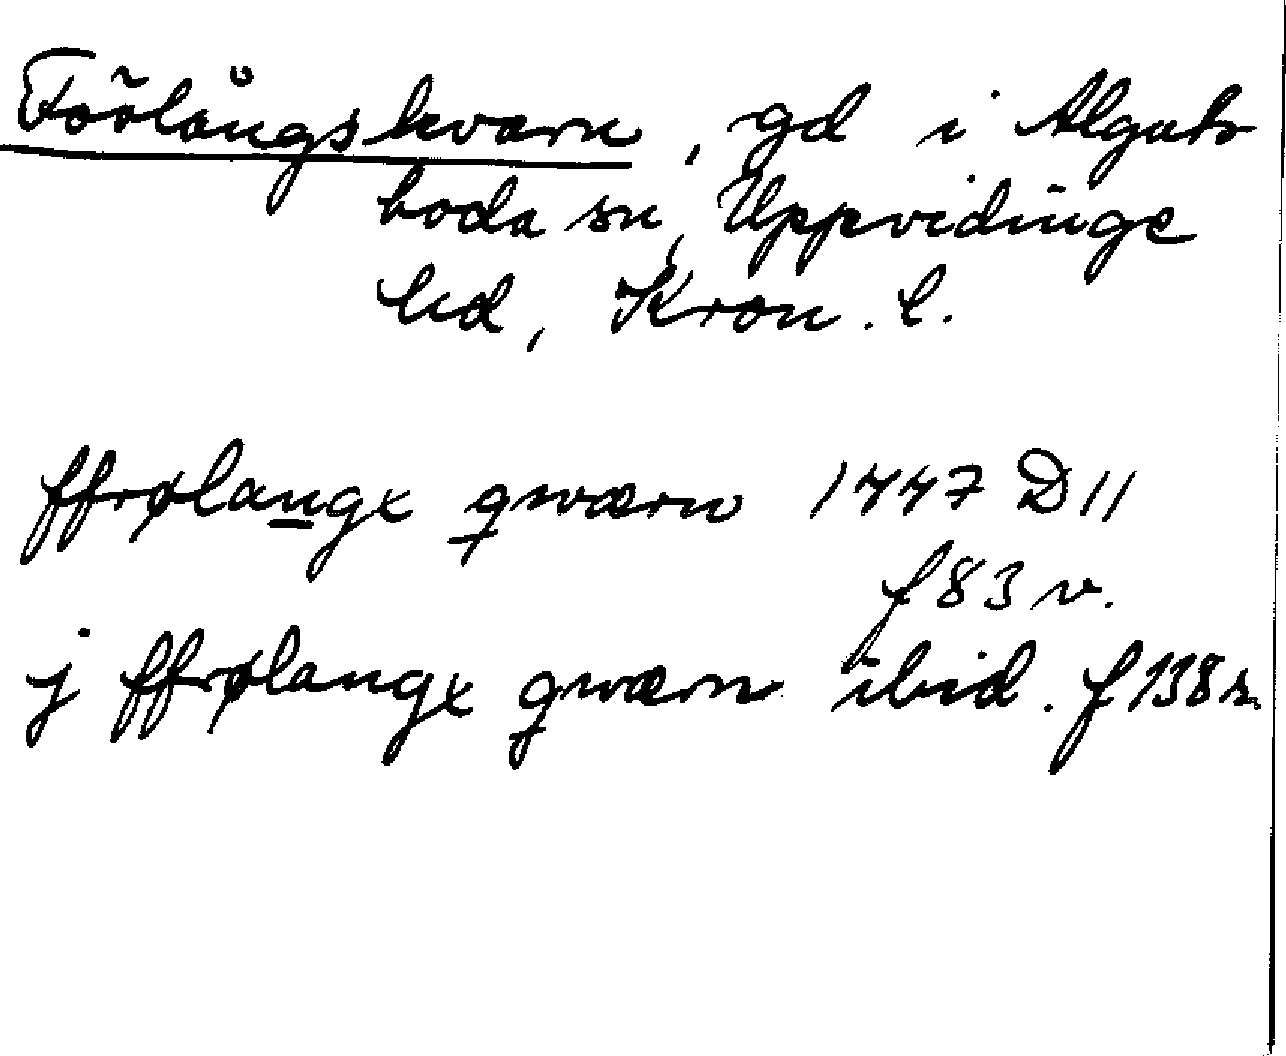 Förlångskvarn, gd i Alguts
boda sn, Uppvidinge
hd, Kron. l.
ffrølange qwærn 1447 D 11
f 83 v.
j ffrølange qwærn ibid. f 138 r.